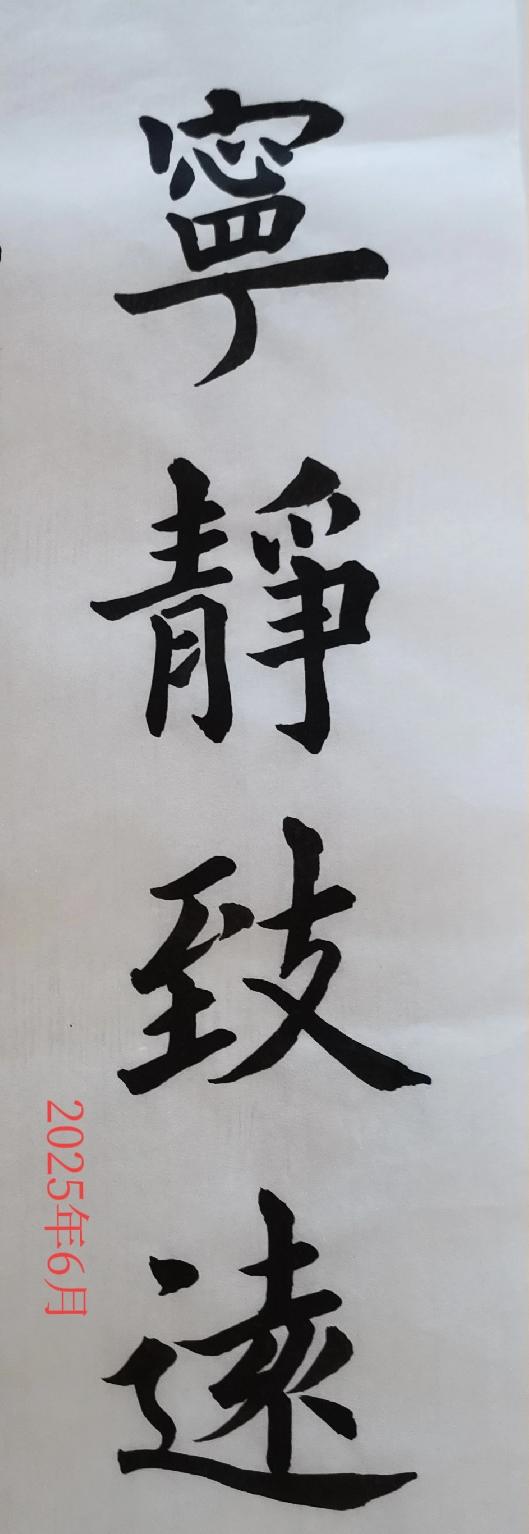 寧靜致遠
2025年6月